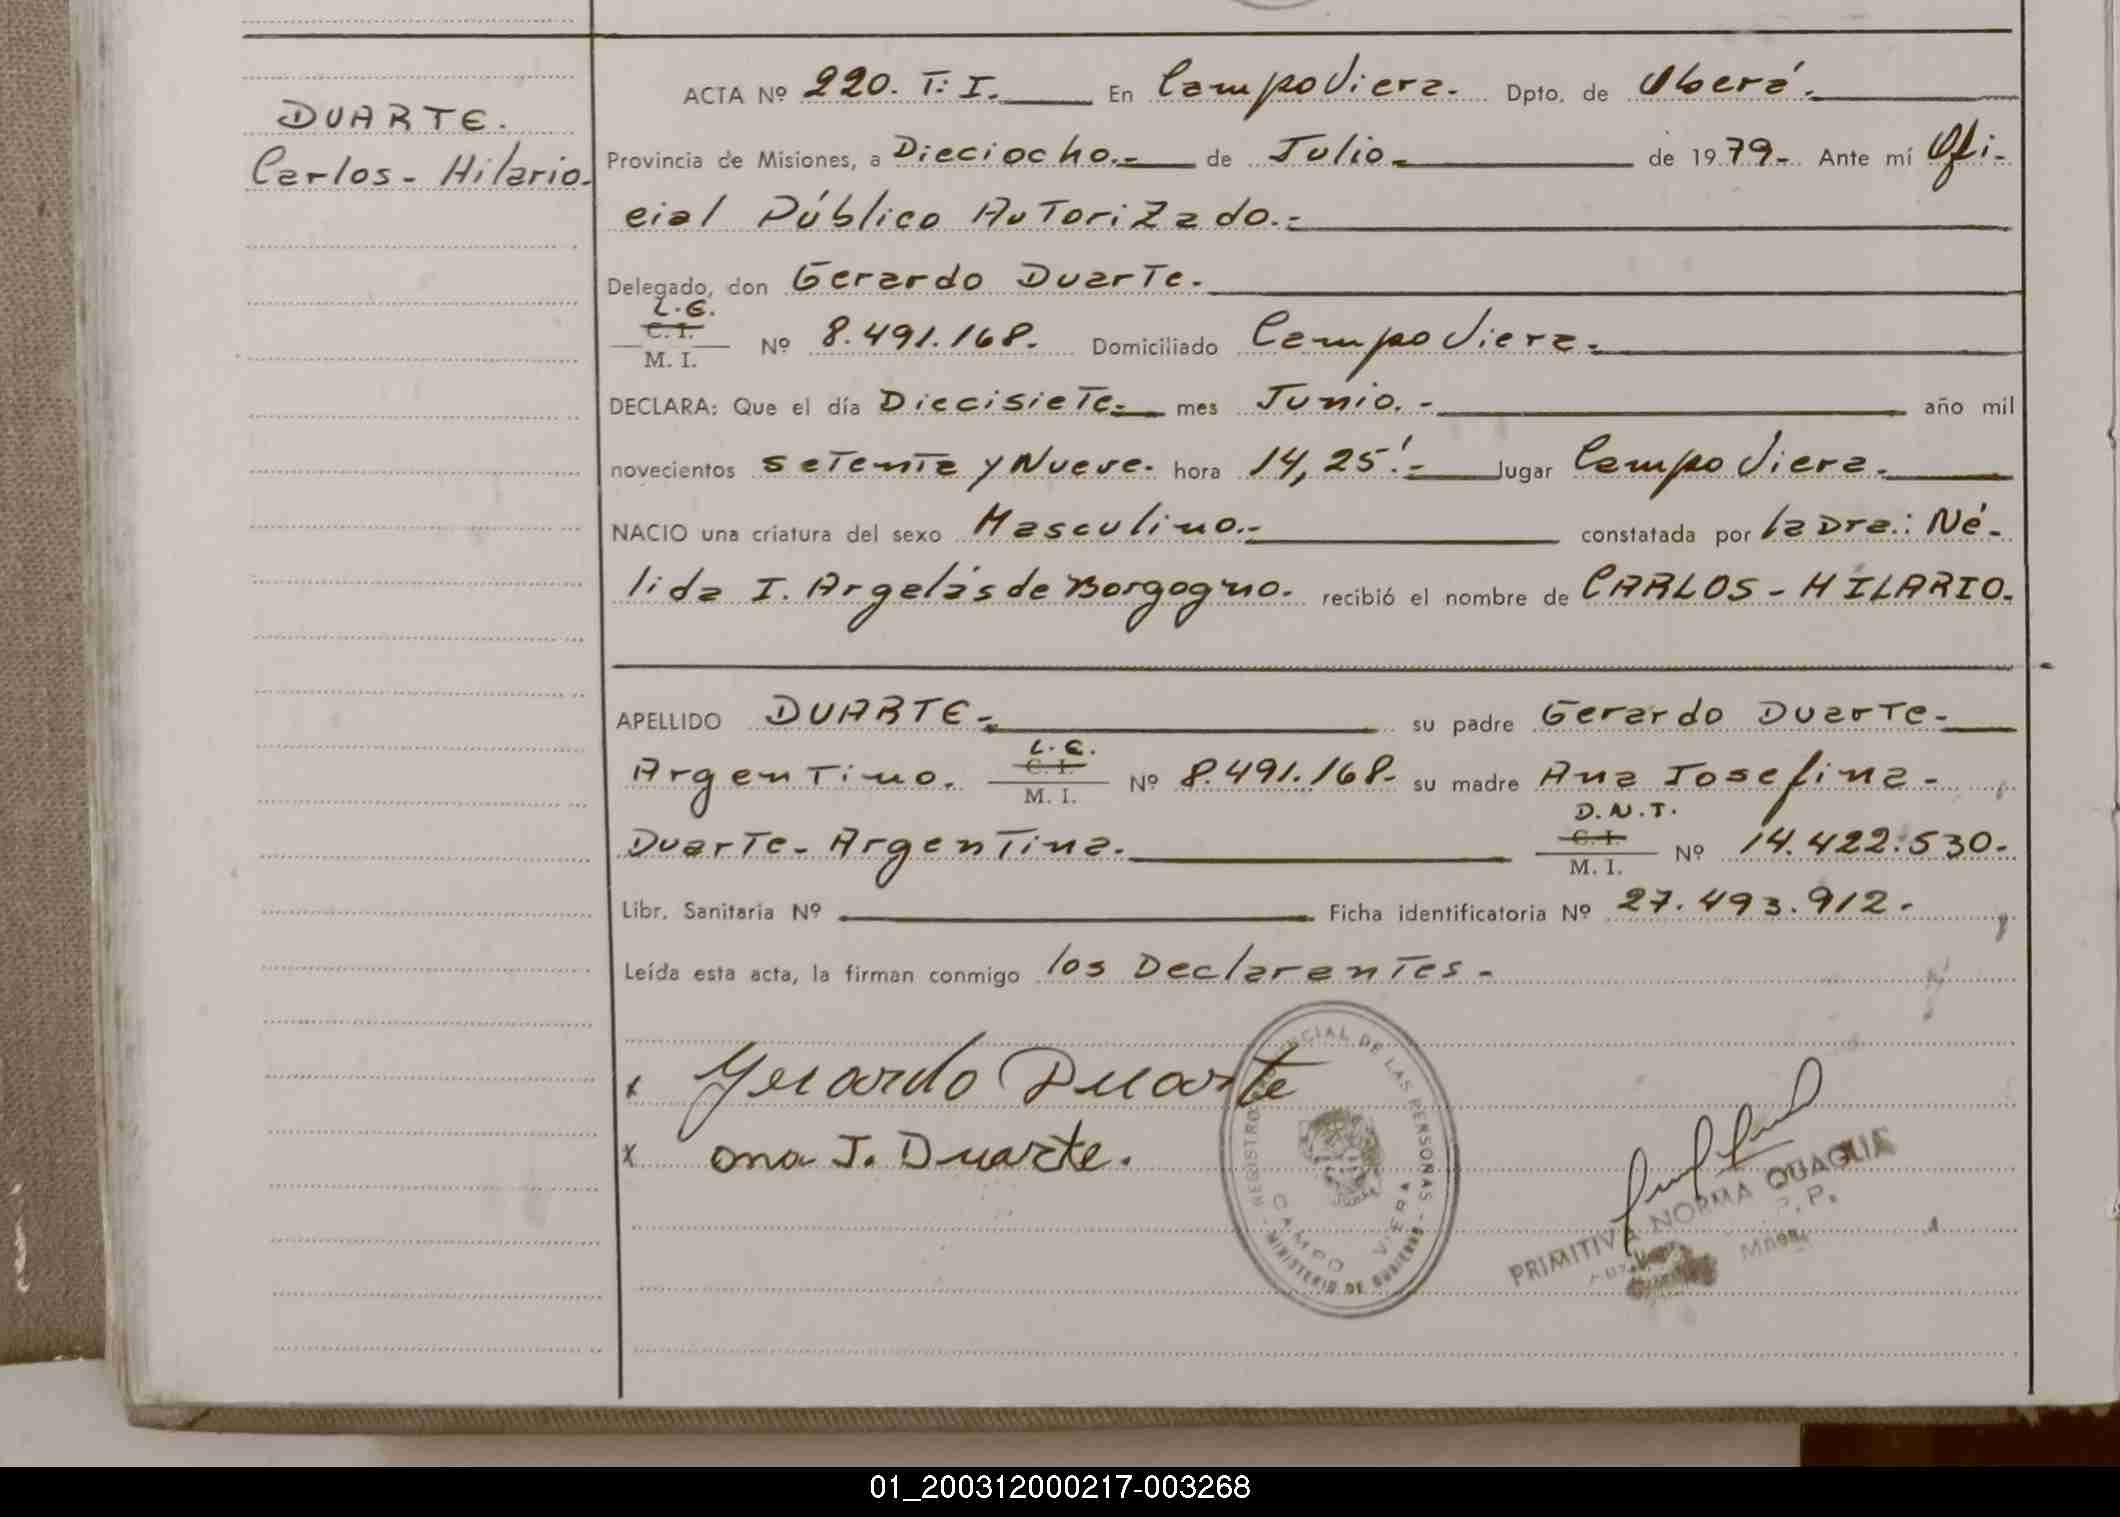 DUARTE.
Carlos - Hilario.
ACTA Nº 220. T: I. En Campo Viera. Dpto. de Oberá.
Provincia de Misiones, a Dieciocho.- de Julio.- de 1979.- Ante mí Ofi-
cial Público Autorizado.-
Delegado, don Gerardo Duarte.
L.E.
C. I.
M. I.
Nº 8.491.168. Domiciliado Campo Viera.
DECLARA: Que el día Diecisiete.- mes Junio.- año mil
novecientos setenta y Nueve. hora 14,25'.- lugar Campo Viera.
NACIO una criatura del sexo Masculino.- constatada por la Dra.: Né-
lida I. Argelás de Borgogno. recibió el nombre de CARLOS - HILARIO.
APELLIDO DUARTE.- su padre Gerardo Duarte-
Argentino. L.E. C. I. M. I. Nº 8.491.168- su madre Ana Josefina-
Duarte- Argentina. D.N.I. C. I. M. I. Nº 14.422.530.
Libr. Sanitaria Nº Ficha identificatoria Nº 27.493.912.
Leída esta acta, la firman conmigo los Declarantes-
x Gerardo Duarte
x ana J. Duarte.
REGISTRO PROVINCIAL DE LAS PERSONAS - MINISTERIO DE GOBIERNO
CAMPO VIERA
PRIMITIVA NORMA QUAGLIA
01_200312000217-003268